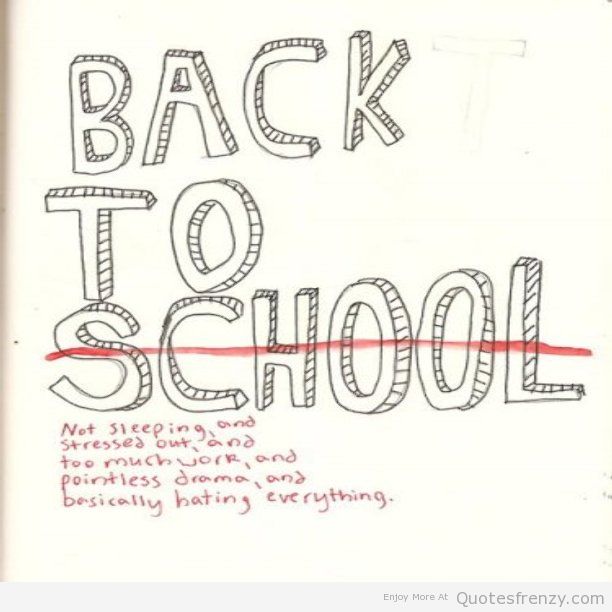 BACK T
TO
SCHOOL
Not sleeping, and
stressed out, and
too much work, and
pointless drama, and
basically hating everything.
Enjoy More At Quotesfrenzy.com